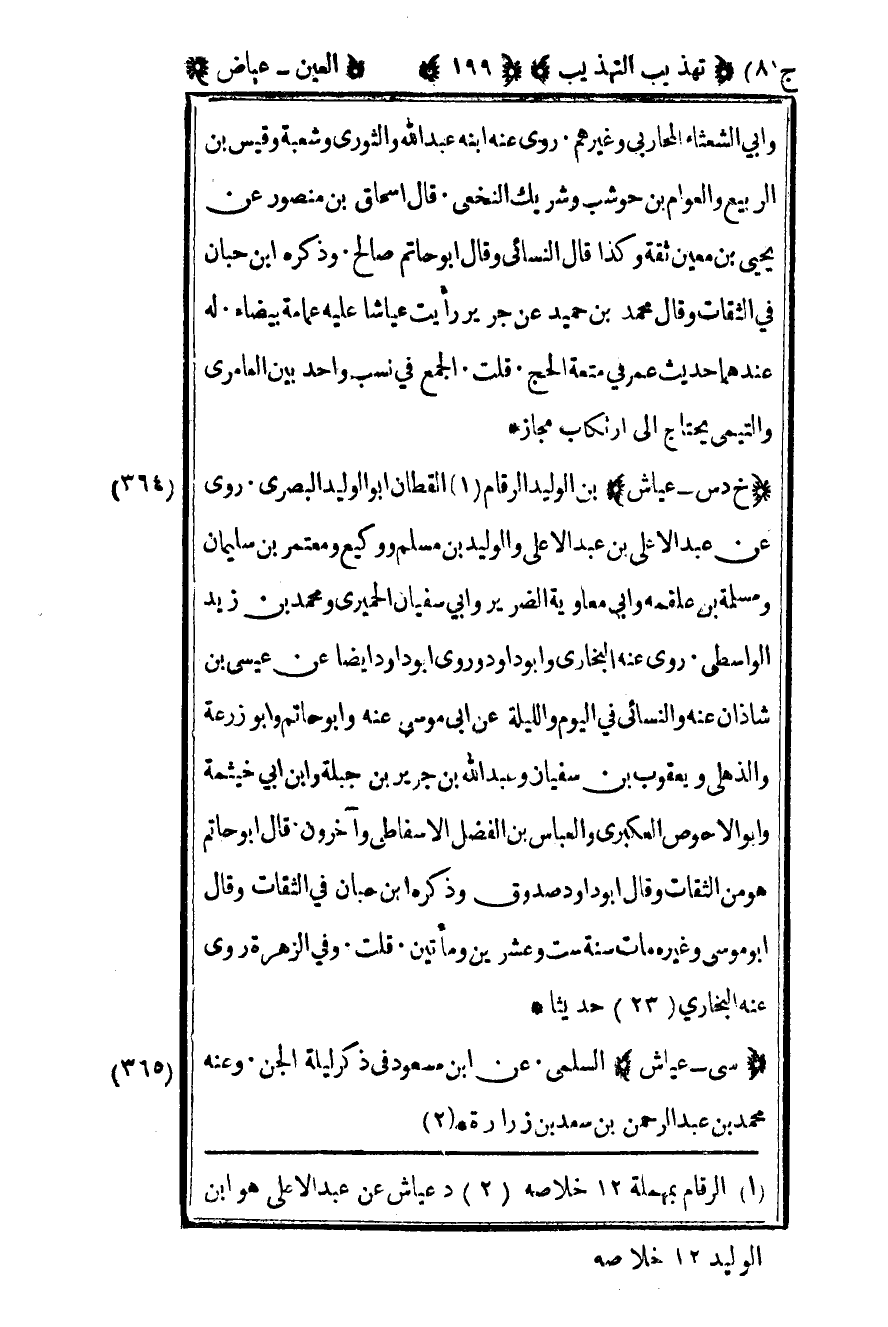 ج (٨) ﴿ تهذيب التهذيب ﴾ ﴿ ١٩٩ ﴾ ﴿ العين - عياض ﴾
وابي الشعثاء المحاربي وغيرهم . روى عنه ابنه عبدالله والثورى وشعبة وقيس بن
الربيع والعوام بن حوشب وشريك النخعى . قال اسحاق بن منصور عن
يحيى بن معين ثقة وكذا قال النسائى وقال ابوحاتم صالح . وذكره ابن حبان
في الثقات وقال محمد بن حميد عن جرير رأيت عياشا عليه عمامة بيضاء . له
عندهما حديث عمر في متعة الحج . قلت . الجمع في نسب واحد بين العامرى
والتيمى يحتاج الى ارتكاب مجاز *
﴿ خ دس - عياش ﴾ بن الوليد الرقام (١) القطان ابوالوليد البصرى . روى (٣٦٤)
عن عبدالاعلى بن عبدالاعلى والوليد بن مسلم ووكيع ومعتمر بن سليمان
ومسلمة بن علقمه وابي معاوية الضرير وابي سفيان الحميرى ومحمد بن زيد
الواسطى . روى عنه البخارى وابوداود وروى ابوداود ايضا عن عيسى بن
شاذان عنه والنسائى في اليوم والليلة عن ابى موسى عنه وابوحاتم وابوزرعة
والذهلى ويعقوب بن سفيان وعبدالله بن جرير بن جبلة وابن ابي خيثمة
وابوالاحوص العكبرى والعباس بن الفضل الاسفاطى وآخرون . قال ابوحاتم
هو من الثقات وقال ابوداود صدوق وذكره ابن حبان في الثقات وقال
ابوموسى وغيره مات سنة ست وعشرين ومأتين . قلت . وفي الزهرة روى
عنه البخاري (٢٣) حديثا *
﴿ سى - عياش ﴾ السلمى . عن ابن مسعود فى ذكر ليلة الجن . وعنه (٣٦٥)
محمد بن عبدالرحمن بن سعد بن زرارة * (٢)
(١) الرقام بمهملة ١٢ خلاصه (٢) د عياش عن عبدالاعلى هو ابن
الوليد ١٢ خلاصه